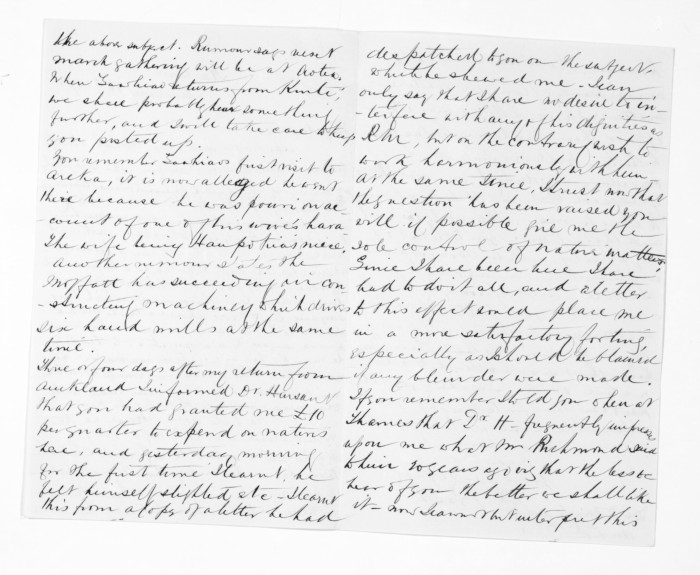 the above subject. Rumour says next
march gathering will be at Aotea.
When Tawhiao returns from Kuiti,
we shall probably hear something
further, and I will take care to keep
you posted up.
You remember Tawhiaos first visit to
it is now alleged he went
there because he was pouri on ac-
count of one of his wives hara
The wife being Haupokia's niece.
Another rumour states the
Moffatt has succeeded in con
-structing machinery which drives
six hand mills at the same
time.
Three or four days after my return from
Auckland I informed Dr. Harsant
that you had granted me £10
per quarter to expend on natives
here, and yesterday, morning
for the first time I learnt, he
felt himself slighted etc - I learnt
this from a copy of a letter he had
despatched to you on the subject,
which he shewed me - I can
only say that I have no desire to in-
terfere with any of his dignities as
R.M, but on the contrary wish to
work harmoniously with him -
At the same time, I trust now that
the question has been raised you
will if possible give me the
sole control of native matters,
Since I have been here I have
had to do it all, and a letter
to this effect would place me
in a more satisfactory footing,
especially as I should be blamed
if any blunder were made.
If you remember I told you when at
Thames that Dr H - frequently impress
upon me what Mr Richmond said
to him 10 years ago viz that the less we
hear of you the better we shall like
it - now I cannot but interpret this